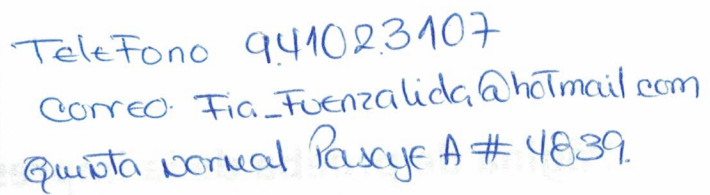 Telefono 941023107
Correo. Fia_Fuenzalida@hotmail.com
Quinta normal Pasaje A # 4839.